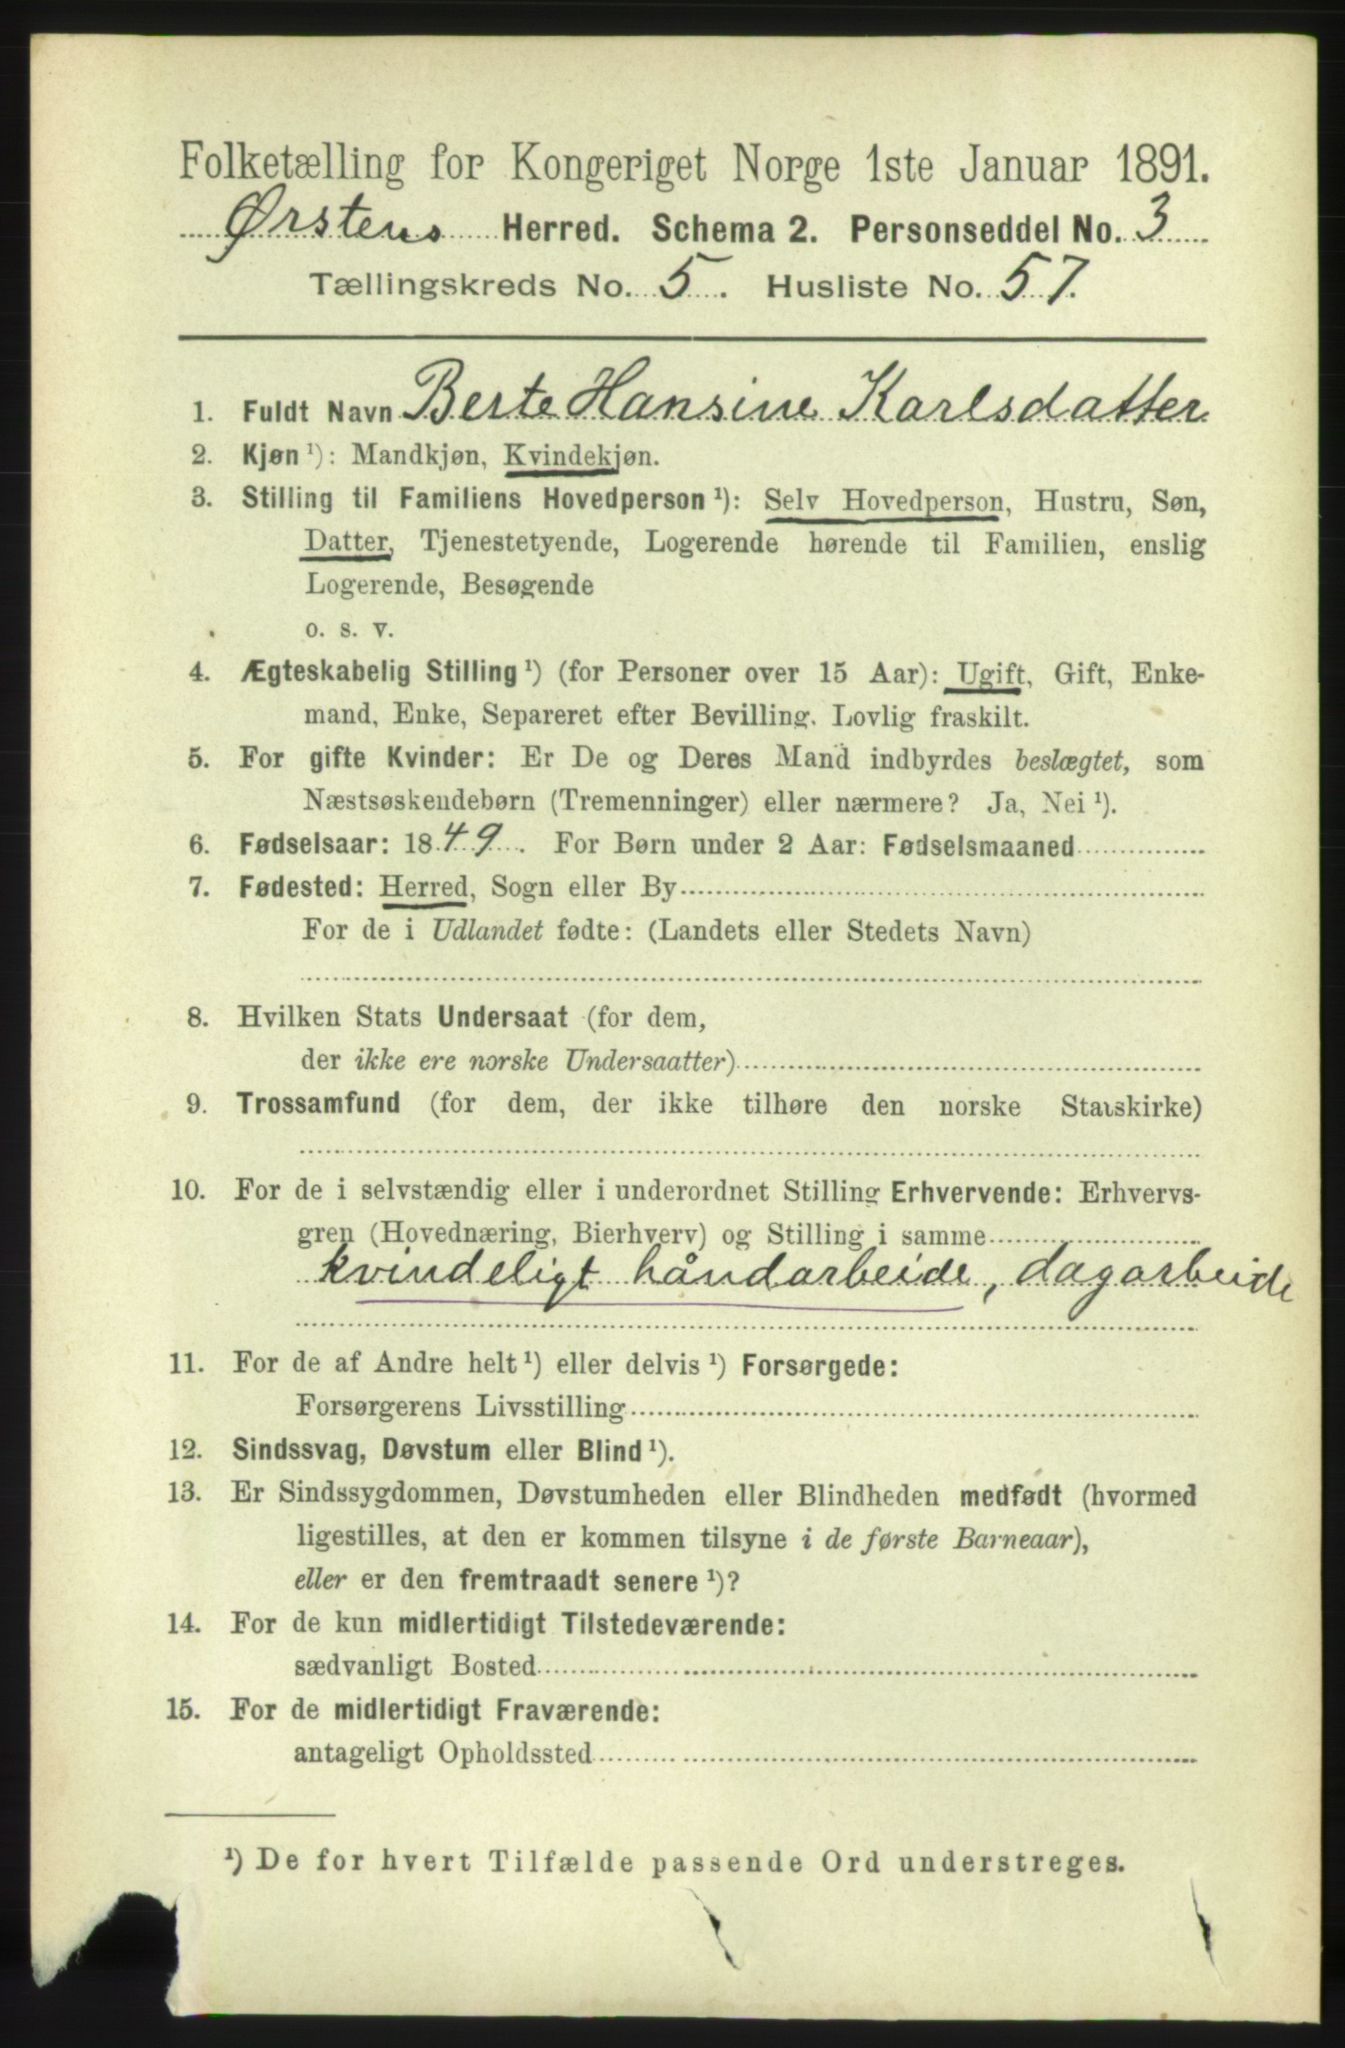 Folketælling for Kongeriget Norge 1ste Januar 1891.
Ørstens Herred. Schema 2. Personseddel No. 3
Tællingskreds No. 5. Husliste No. 57.
1. Fuldt Navn Berte Hansine Karlsdatter
2. Kjøn ¹): Mandkjøn, Kvindekjøn.
3. Stilling til Familiens Hovedperson ¹): Selv Hovedperson, Hustru, Søn,
Datter, Tjenestetyende, Logerende hørende til Familien, enslig
Logerende, Besøgende
o. s. v.
4. Ægteskabelig Stilling ¹) (for Personer over 15 Aar): Ugift, Gift, Enke-
mand, Enke, Separeret efter Bevilling. Lovlig fraskilt.
5. For gifte Kvinder: Er De og Deres Mand indbyrdes beslægtet, som
Næstsøskendebørn (Tremenninger) eller nærmere? Ja, Nei ¹).
6. Fødselsaar: 1849. For Børn under 2 Aar: Fødselsmaaned
7. Fødested: Herred, Sogn eller By
For de i Udlandet fødte: (Landets eller Stedets Navn)
8. Hvilken Stats Undersaat (for dem,
der ikke ere norske Undersaatter)
9. Trossamfund (for dem, der ikke tilhøre den norske Statskirke)
10. For de i selvstændig eller i underordnet Stilling Erhvervende: Erhvervs-
gren (Hovednæring, Bierhverv) og Stilling i samme
kvindeligt håndarbeide, dagarbeide
11. For de af Andre helt ¹) eller delvis ¹) Forsørgede:
Forsørgerens Livsstilling
12. Sindssvag, Døvstum eller Blind ¹).
13. Er Sindssygdommen, Døvstumheden eller Blindheden medfødt (hvormed
ligestilles, at den er kommen tilsyne i de første Barneaar),
eller er den fremtraadt senere ¹)?
14. For de kun midlertidigt Tilstedeværende:
sædvanligt Bosted
15. For de midlertidigt Fraværende:
antageligt Opholdssted
¹) De for hvert Tilfælde passende Ord understreges.